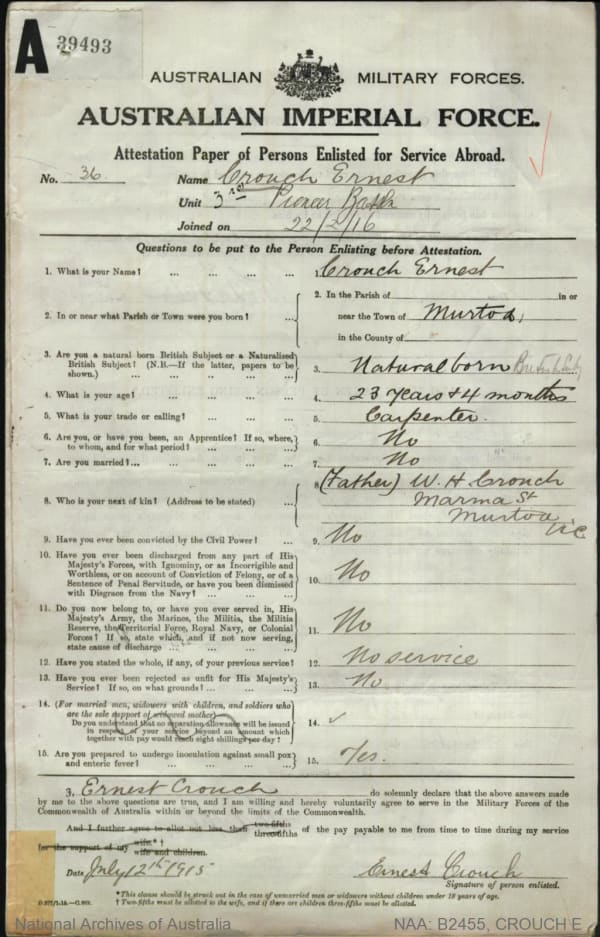 A
39493
AUSTRALIAN MILITARY FORCES.
AUSTRALIAN IMPERIAL FORCE.
Attestation Paper of Persons Enlisted for Service Abroad.
No. 36 Name Crouch Ernest
Unit 3rd Pioneer Battn
Joined on 22/2/16
Questions to be put to the Person Enlisting before Attestation.
1. What is your Name? ... ... ... ... 1. Crouch Ernest
2. In or near what Parish or Town were you born? ... 2. In the Parish of in or
near the Town of Murtoa,
in the County of
3. Are you a natural born British Subject or a Naturalised
British Subject? (N.B.—If the latter, papers to be
shown.) ... ... ... ... ... 3. Natural born British
4. What is your age? ... ... ... ... 4. 23 Years & 4 months
5. What is your trade or calling? ... ... ... 5. Carpenter.
6. Are you, or have you been, an Apprentice? If so, where,
to whom, and for what period? ... ... ... 6. No
7. Are you married? ... ... ... ... ... 7. No
8. Who is your next of kin? (Address to be stated) ... 8. (Father) W. H Crouch
Marma St
Murtoa
Vic
9. Have you ever been convicted by the Civil Power? ... 9. No
10. Have you ever been discharged from any part of His
Majesty's Forces, with Ignominy, or as Incorrigible and
Worthless, or on account of Conviction of Felony, or of a
Sentence of Penal Servitude, or have you been dismissed
with Disgrace from the Navy? ... ... ... 10. No
11. Do you now belong to, or have you ever served in, His
Majesty's Army, the Marines, the Militia, the Militia
Reserve, the Territorial Force, Royal Navy, or Colonial
Forces? If so, state which, and if not now serving,
state cause of discharge ... ... ... 11. No
12. Have you stated the whole, if any, of your previous service? 12. No service
13. Have you ever been rejected as unfit for His Majesty's
Service? If so, on what grounds? ... ... ... 13. No
14. (For married men, widowers with children, and soldiers who
are the sole support of widowed mother)
Do you understand that no separation allowance will be issued
in respect of your service beyond an amount which
together with pay would reach eight shillings per day? 14. ✓
15. Are you prepared to undergo inoculation against small pox
and enteric fever? ... ... ... ... 15. Yes.
I, Ernest Crouch do solemnly declare that the above answers made
by me to the above questions are true, and I am willing and hereby voluntarily agree to serve in the Military Forces of the
Commonwealth of Australia within or beyond the limits of the Commonwealth.
And I further agree to allot not less than two-fifths three-fifths of the pay payable to me from time to time during my service
for the support of my wife*† wife and children.
Date July 12th 1915 Ernest Crouch
Signature of person enlisted.
*This clause should be struck out in the case of unmarried men or widowers without children under 18 years of age.
† Two-fifths must be allotted to the wife, and if there are children three-fifths must be allotted.
National Archives of Australia NAA: B2455, CROUCH E